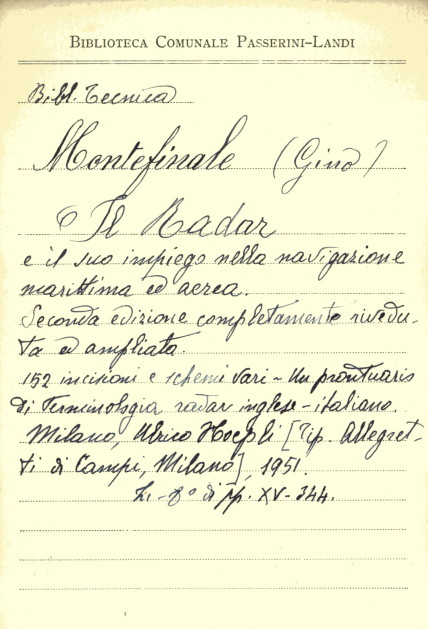 BIBLIOTECA COMUNALE PASSERINI-LANDI
Bibl. Tecnica
Montefinale (Gino)
Il Radar
e il suo impiego nella navigazione
marittima ed aerea.
Seconda edizione completamente rivedu-
ta ed ampliata.
152 incisioni e schemi vari - Un prontuario
di Terminologia radar inglese-italiano.
Milano, Ulrico Hoepli [Tip. Allegret-
ti di Campi, Milano], 1951.
8° di pp. XV-344.